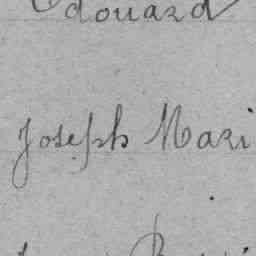 Edouard
Joseph Mari